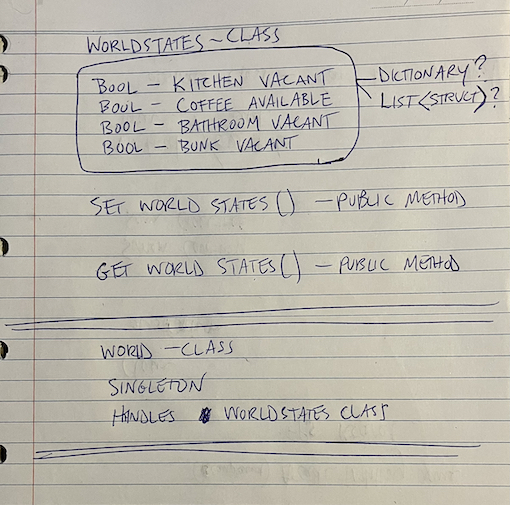 WORLDSTATES ~ CLASS
BOOL - KITCHEN VACANT
BOOL - COFFEE AVAILABLE
BOOL - BATHROOM VACANT
BOOL - BUNK VACANT
DICTIONARY?
LIST<STRUCT>?
SET WORLD STATES() - PUBLIC METHOD
GET WORLD STATES() - PUBLIC METHOD
WORLD - CLASS
SINGLETON
HANDLES WORLDSTATES CLASS